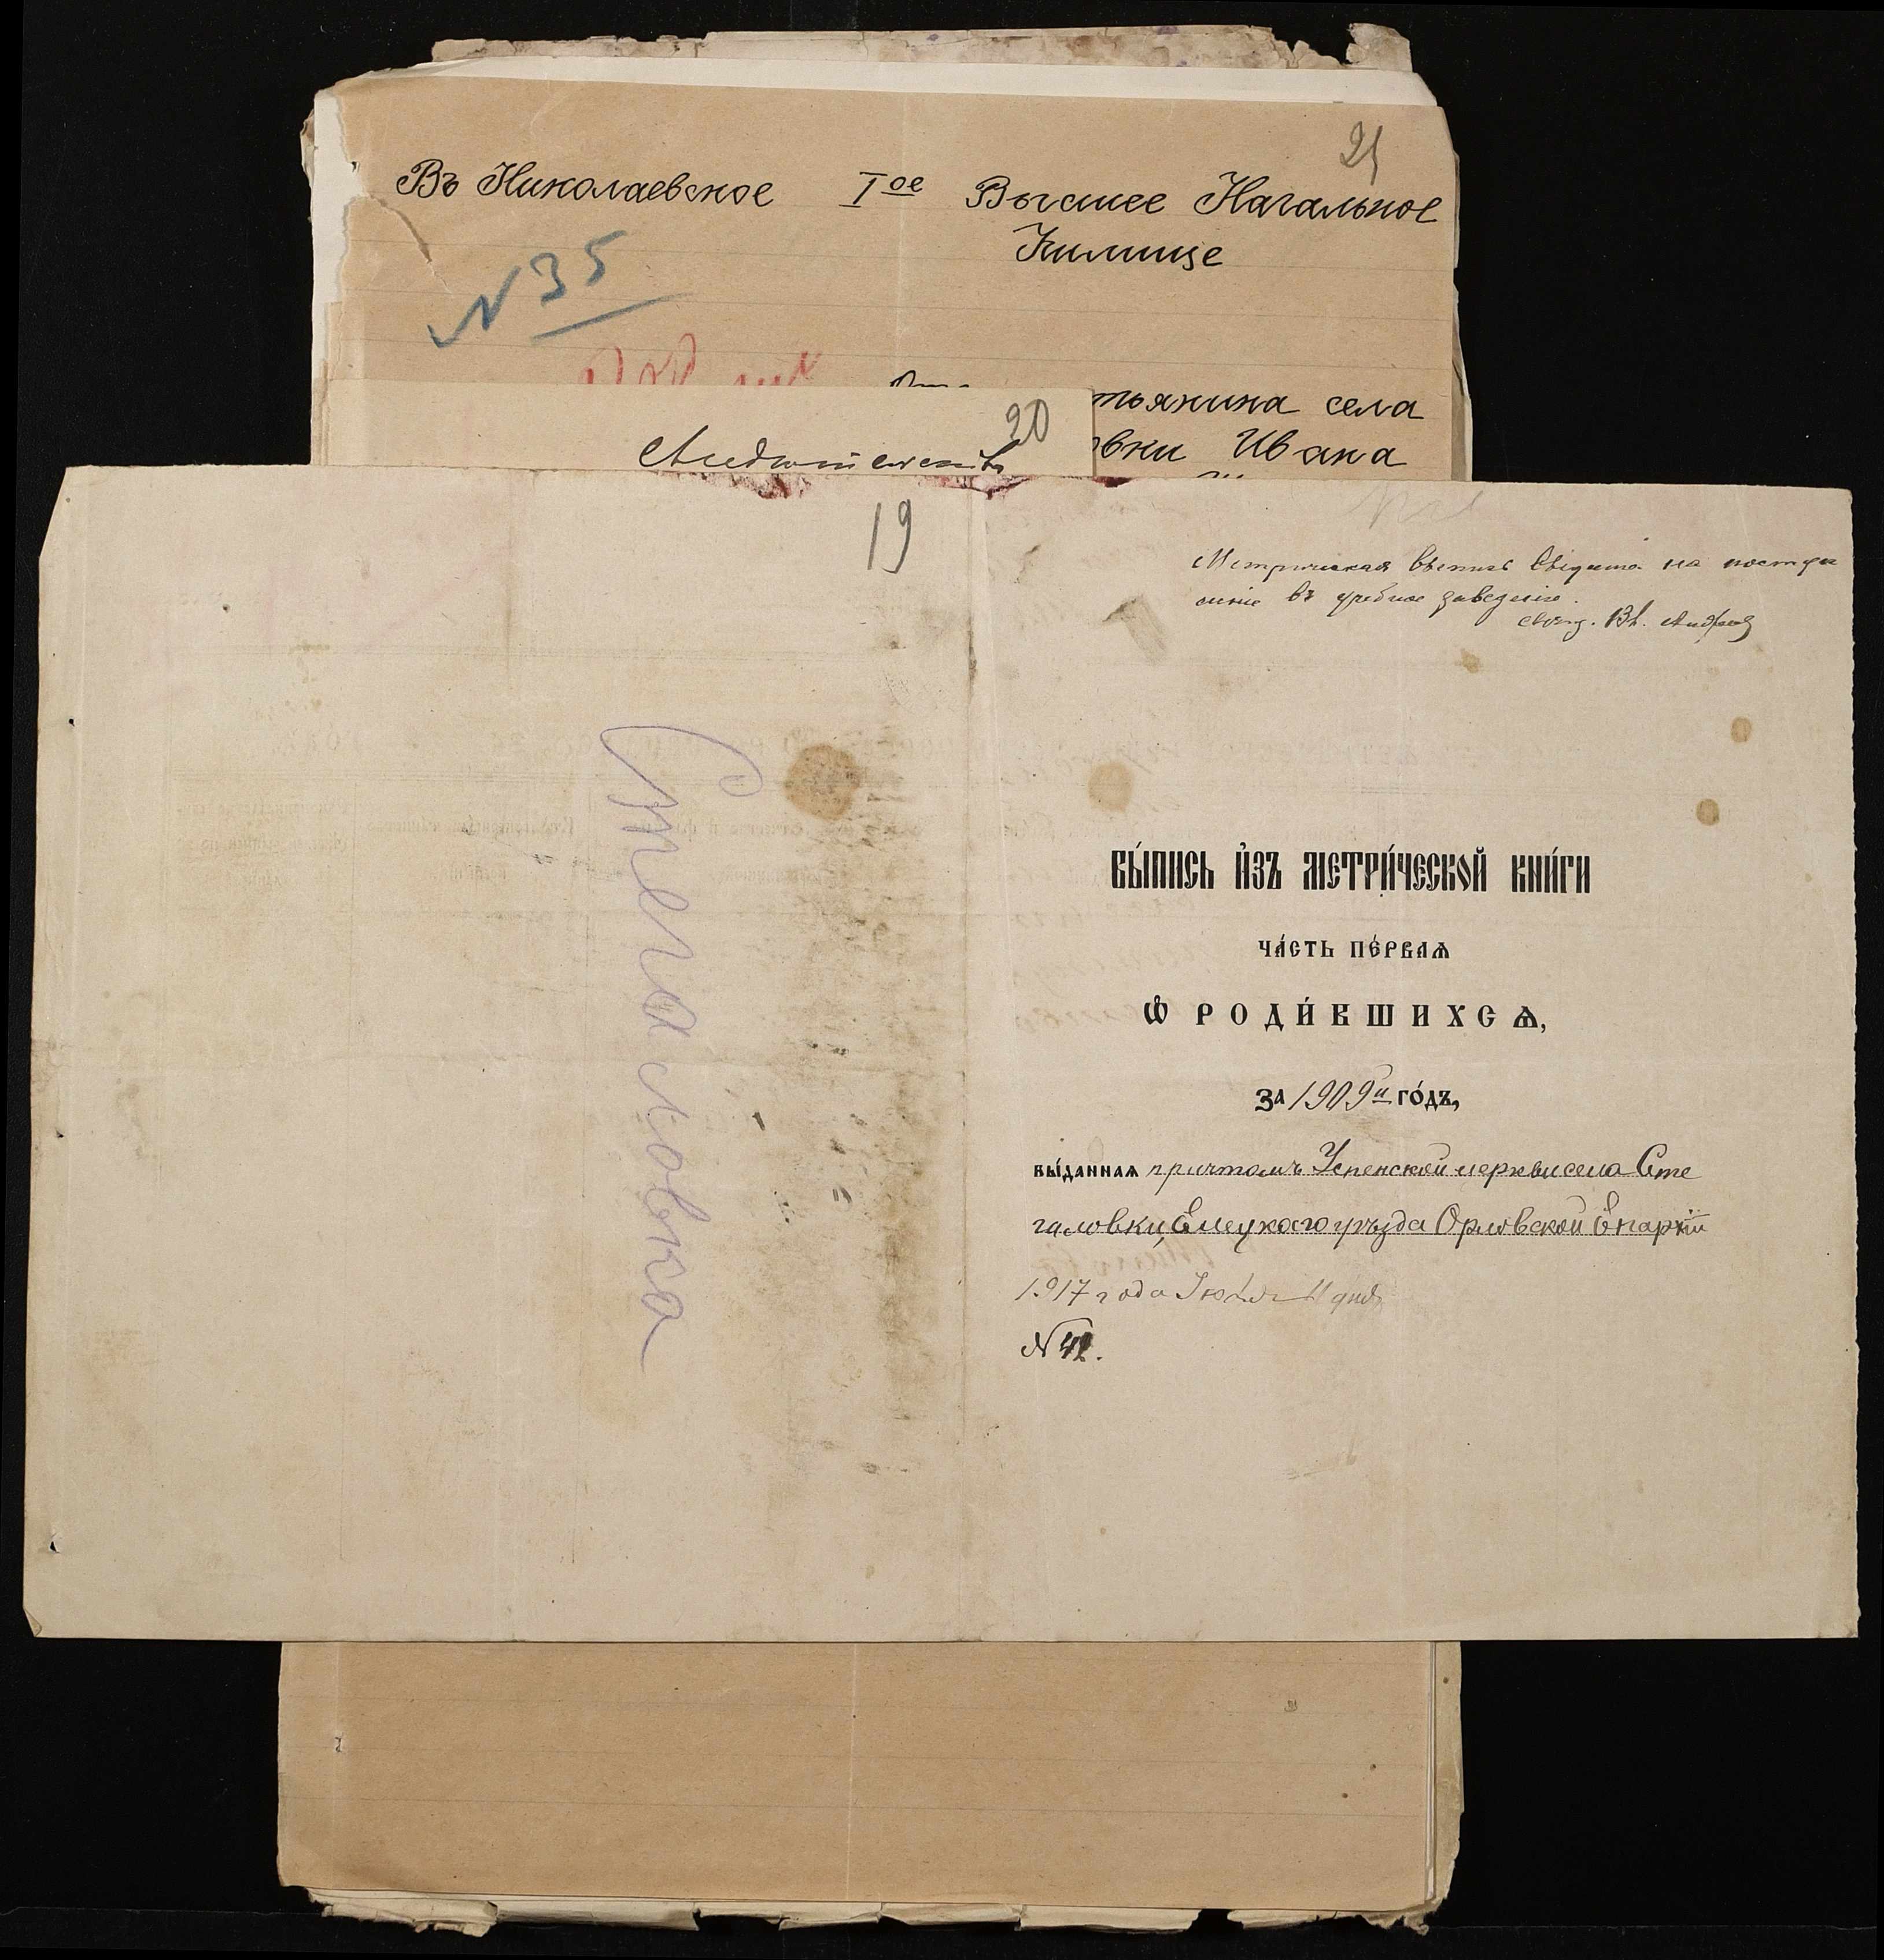 21
Въ Николаевское Iое Высшее Начальное
Училище
N 35
тьянина села
вки Ивана
20
19
Метрическая выпись выдана на поступ
ленiе въ учебное заведенiе.
Стегаловка
ВЫ́ПИСЬ И҆ЗЪ МЕТРИ́ЧЕСКОЙ КНИ́ГИ
ЧА́СТЬ ПЕ́РВАѦ
Ѡ҆ РОДИ́ВШИХСѦ,
ЗА 1909й ГО́ДЪ,
ВЫ́ДАННАѦ причтомъ Успенской церкви села Сте
галовки, Елецкаго уѣзда Орловской Епархiи
1917 года Iюля 11 дня
N 42.